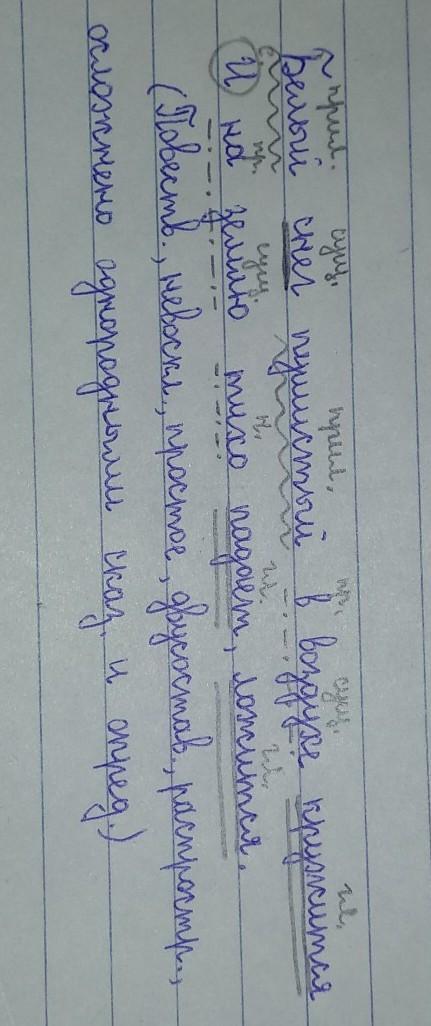 прил. сущ. прил. пр. сущ. гл.
Белый снег пушистый в воздухе кружится
с. пр. сущ. н. гл. гл.
И на землю тихо падает, ложится.
(Повеств., невоскл, простое, двусостав., распростр.,
осложнено однородными сказ. и опред.)